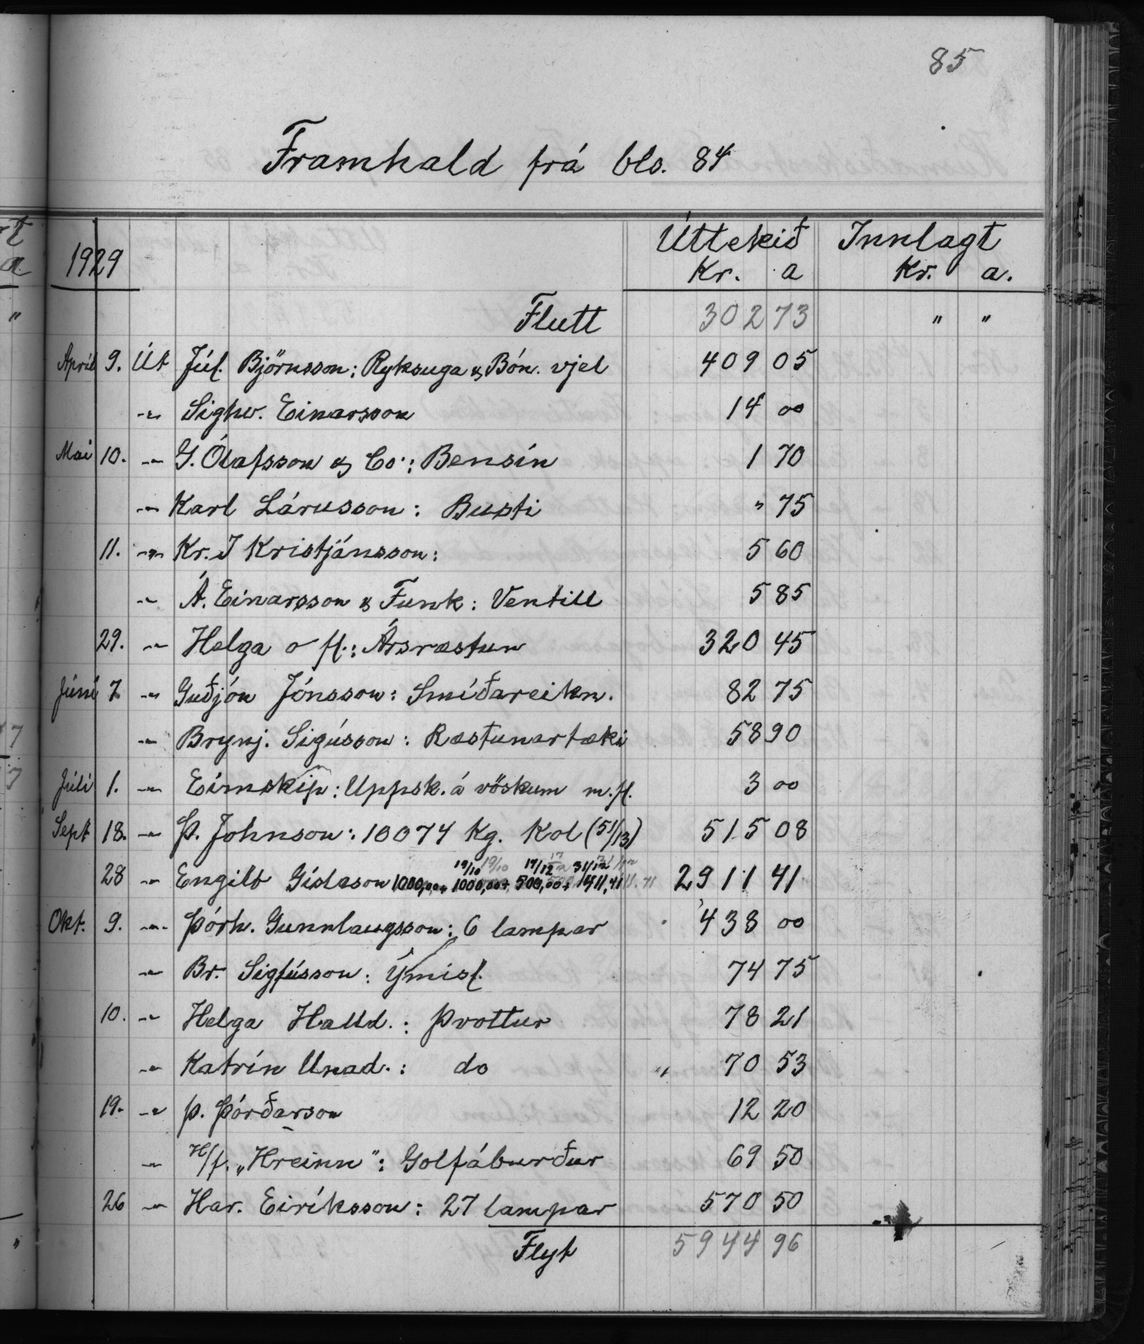 85
Framhald frá bls. 84
1929 Úttekið Innlagt
Kr. a Kr. a.
Flutt 302 73 " "
Apríl 9. Út Júl. Björnsson: Ryksuga & Bón. vjel 409 05
-"- Sighv. Einarsson 14 00
Maí 10. -"- G. Ólafsson & Co.: Bensín 1 70
-"- Karl Lárusson: Busti " 75
11. -"- Kr. J Kristjánsson: 5 60
-"- Á. Einarsson & Funk: Ventill 5 85
29. -"- Helga o fl.: Ársræstun 320 45
Júní 7 -"- Guðjón Jónsson: Smíðareikn. 82 75
-"- Brynj. Sigússon: Ræstunartæki 58 90
Júlí 1. -"- Eimskip: Uppsk. á vöskum m.fl. 3 00
Sept 18. -"- Þ. Johnson: 10074 Kg. Kol (51/13) 515 08
19/10 17/12 31/12
28 -"- Engilb Gíslason 1000,00+ 1000,00+ 500,00+ 1411,41 2911 41
Okt. 9. -"- Þórh. Gunnlaugsson: 6 lampar 438 00
-"- Br. Sigfússon: Ýmisl. 74 75
10. -"- Helga Halld.: Þvottur 78 21
-"- Katrín Unad.: do 70 53
19. -"- Þ. Þórðarson 12 20
-"- H/f. „Hreinn": Golfáburður 69 50
26 -"- Har. Eiríksson: 27 lampar 570 50
Flyt 5944 96